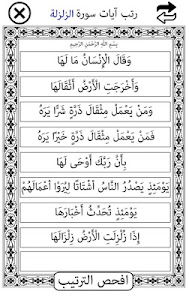 رتب آيات سورة الزلزلة
بِسْمِ اللَّهِ الرَّحْمَٰنِ الرَّحِيمِ
وَقَالَ الْإِنْسَانُ مَا لَهَا
وَأَخْرَجَتِ الْأَرْضُ أَثْقَالَهَا
وَمَنْ يَعْمَلْ مِثْقَالَ ذَرَّةٍ شَرًّا يَرَهُ
فَمَنْ يَعْمَلْ مِثْقَالَ ذَرَّةٍ خَيْرًا يَرَهُ
بِأَنَّ رَبَّكَ أَوْحَى لَهَا
يَوْمَئِذٍ يَصْدُرُ النَّاسُ أَشْتَاتًا لِيُرَوْا أَعْمَالَهُمْ
يَوْمَئِذٍ تُحَدِّثُ أَخْبَارَهَا
إِذَا زُلْزِلَتِ الْأَرْضُ زِلْزَالَهَا
افحص الترتيب